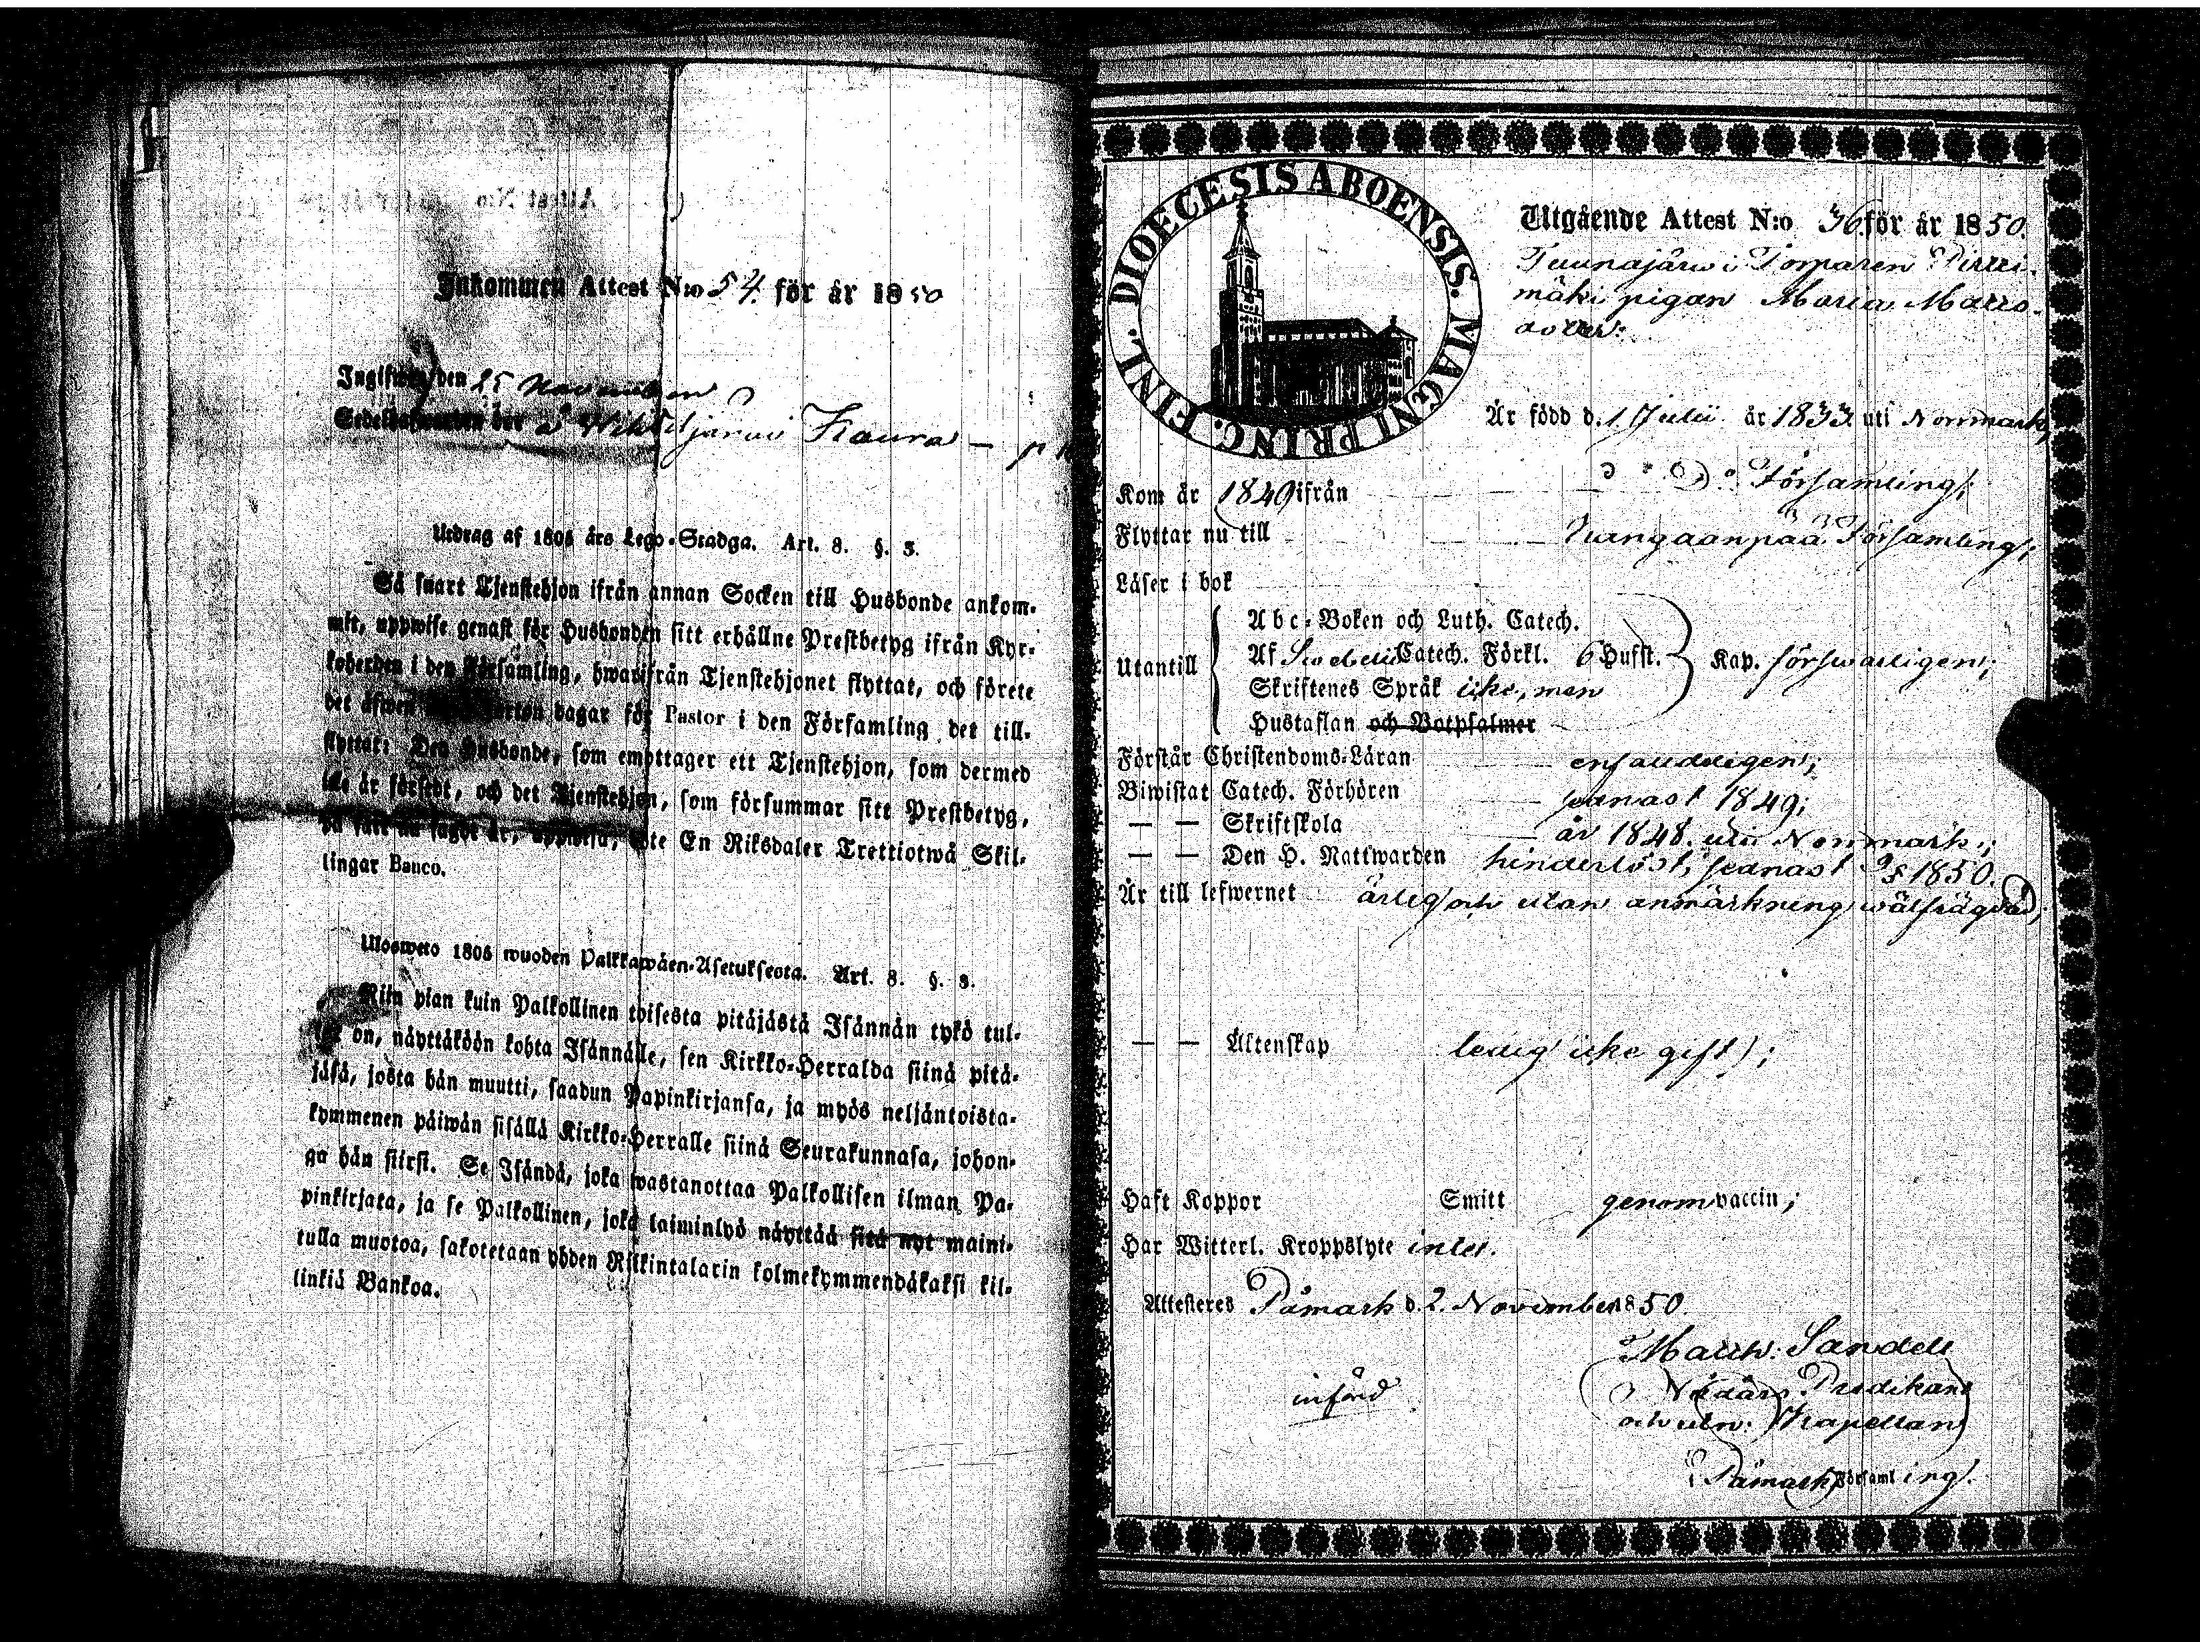 Inkommen Attest N:o 54 för år 1850
den 25 November
Kaura —
Utdrag af 1805 års Lego-Stadga. Art. 8. §. 3.
Så snart Tjenstehjon ifrån annan Socken till Husbonde ankom-
mit, uppwise genast för Husbonden sitt erhållne Prestbetyg ifrån Kyr-
koherden i den Församling, hwarifrån Tjenstehjonet flyttat, och förete
det äfwen dagar för Pastor i den Församling det till-
flyttat: Den Husbonde, som emottager ett Tjenstehjon, som dermed
icke är försedt, och det Tjenstehjon, som försummar sitt Prestbetyg,
på sätt nu sagdt är, uppwisa, böte En Riksdaler Trettiotwå Skil-
lingar Banco.
Ulosweto 1805 wuoden Palkkawäen-Asetuksesta. Art. 8. §. 3.
Niin pian kuin Palkollinen toisesta pitäjästä Isännän tykö tul-
lut on, näyttäköön kohta Isännälle, sen Kirkko-Herralda siinä pitä-
jäsä, josta hän muutti, saadun Papinkirjansa, ja myös neljäntoista-
kymmenen päiwän sisällä Kirkko-Herralle siinä Seurakunnasa, johon-
ga hän siirsi. Se Isändä, joka wastanottaa Palkollisen ilman Pa-
pinkirjata, ja se Palkollinen, joka laiminlyö näyttää sitä nyt maini-
tulla muotoa, sakotetaan yhden Riikintalarin kolmekymmendäkaksi kil-
linkiä Bankoa.
DIOECESIS ABOENSIS. MAGNI PRINC. FINL.
Utgående Attest N:o 36 för år 1850.
Tuunajärwi Torparen
mäki pigan Maria Matts
dotter:
Är född d. 1 Julii år 1833 uti Norrmark,
Kom år 1849 ifrån D:o D:o Församling;
Flyttar nu till Kangaanpää Församling;
Läser i bok
Utantill
Abc-Boken och Luth. Catech.
Af Swebelii Catech. Förkl. 6 Hufst. Kap. förswarligen;
Skriftenes Språk icke, men
Hustaflan och Botpsalmer
Förstår Christendoms-Läran enfaldeligen;
Biwistat Catech. Förhören senast 1849;
— — Skriftskola år 1848. uti Norrmark;
— — Den H. Nattwarden hinderlöst, senast 1850.
Är till lefwernet ärlig och utan anmärkning wälfrägdad;
— — Äktenskap ledig (icke gift);
Haft Koppor Smitt genom vaccin;
Har Witterl. Kroppslyte intet.
Attesteres Påmark d. 2. November 1850.
Matth: Sandell
Nådårs Predikant
och utn: Kapellan
i Påmark Församling.
införd